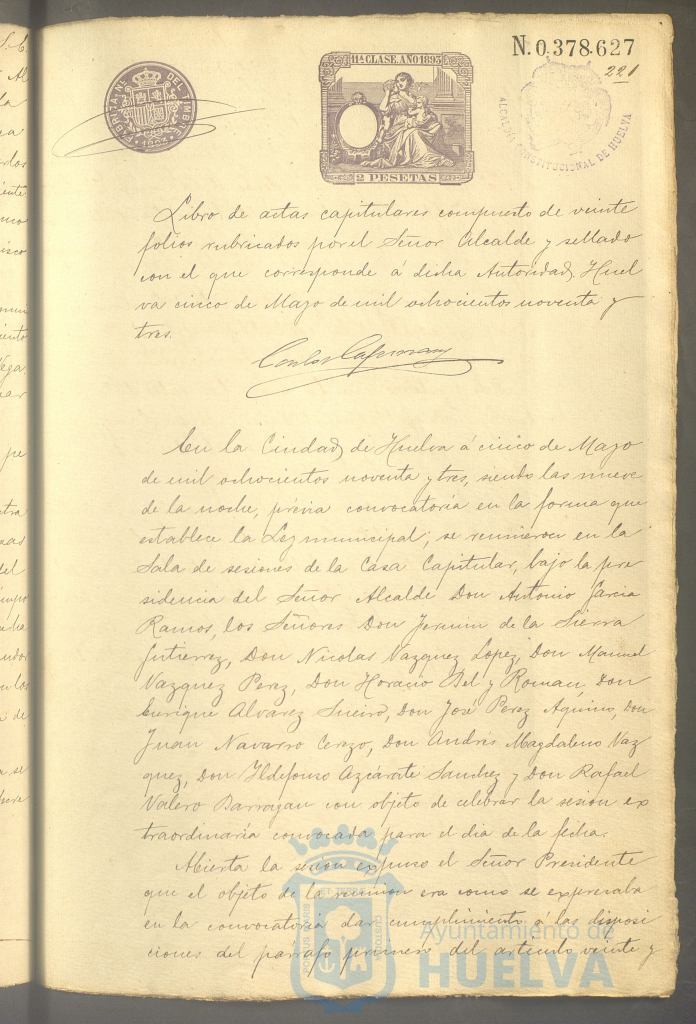 N.0.378.627
221
11ª CLASE. AÑO 1893
2 PESETAS
FABRICA NL. DEL TIMBRE
ALCALDIA CONSTITUCIONAL DE HUELVA
Libro de actas capitulares compuesto de veinte
folios rubricados por el Señor Alcalde y sellado
con el que corresponde á dicha Autoridad, Huel
va cinco de Mayo de mil ochocientos noventa y
tres.
En la Ciudad de Huelva á cinco de Mayo
de mil ochocientos noventa y tres, siendo las nueve
de la noche, prévia convocatoria en la forma que
establece la Ley municipal; se reunieron en la
Sala de sesiones de la Casa Capitular, bajo la pre
sidencia del Señor Alcalde Don Antonio Garcia
Ramos, los Señores Don Fermin de la Sierra
Gutierrez, Don Nicolas Vazquez Lopez, Don Manuel
Vazquez Perez, Don Horacio Bel y Roman, Don
Enrique Alvarez Sueiro, Don José Perez Aquino, Don
Juan Navarro Cerezo, Don Andrés Magdaleno Vaz
quez, Don Ildefonso Azcárate Sanchez y Don Rafael
Valero Barragan con objeto de celebrar la sesion ex
traordinaria convocada para el dia de la fecha.
Abierta la sesion expuso el Señor Presidente
que el objeto de la reunion era como se expresaba
en la convocatoria dar cumplimiento a las disposi
ciones del parrafo primero del articulo veinte y
Ayuntamiento de
HUELVA